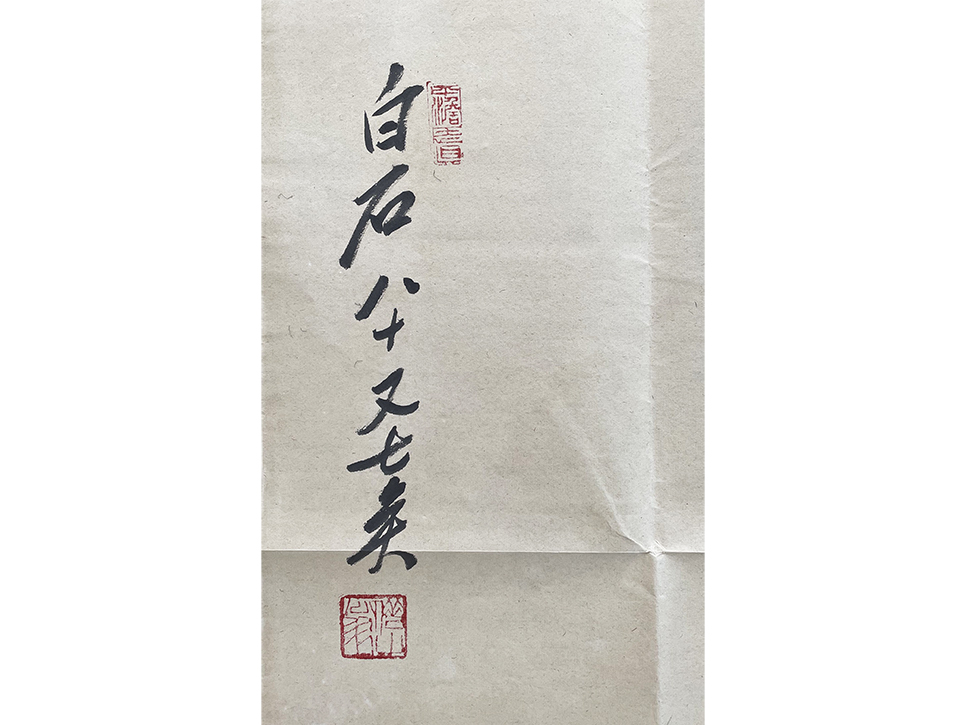 白石八十又七矣